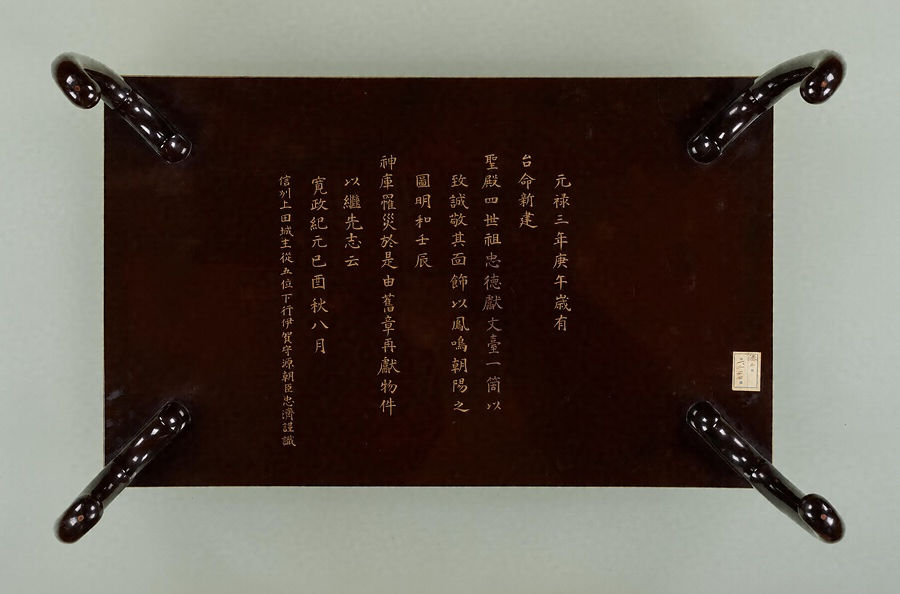 元禄三年庚午歳有
台命新建
聖殿四世祖忠徳獻文臺一箇以
致誠敬其面飾以鳳鳴朝陽之
圖明和壬辰
神庫罹災於是由舊章再獻物件
以繼先志云
寛政紀元己酉秋八月
信州上田城主從五位下行伊賀守源朝臣忠濟謹識